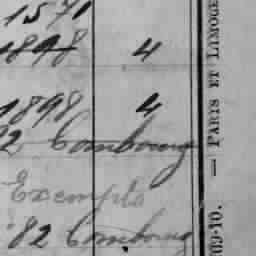 1571
1898 4
1898 4
2 Combourg
Exempts
82 Combourg
— PARIS ET LIMOGE
109-10.